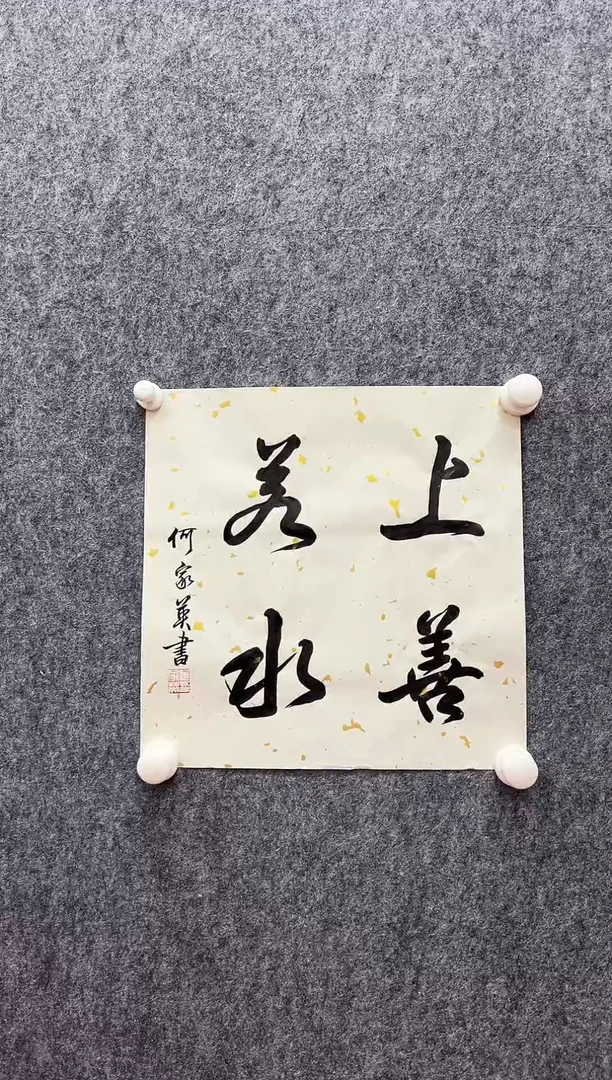 上善
若水
何家英書